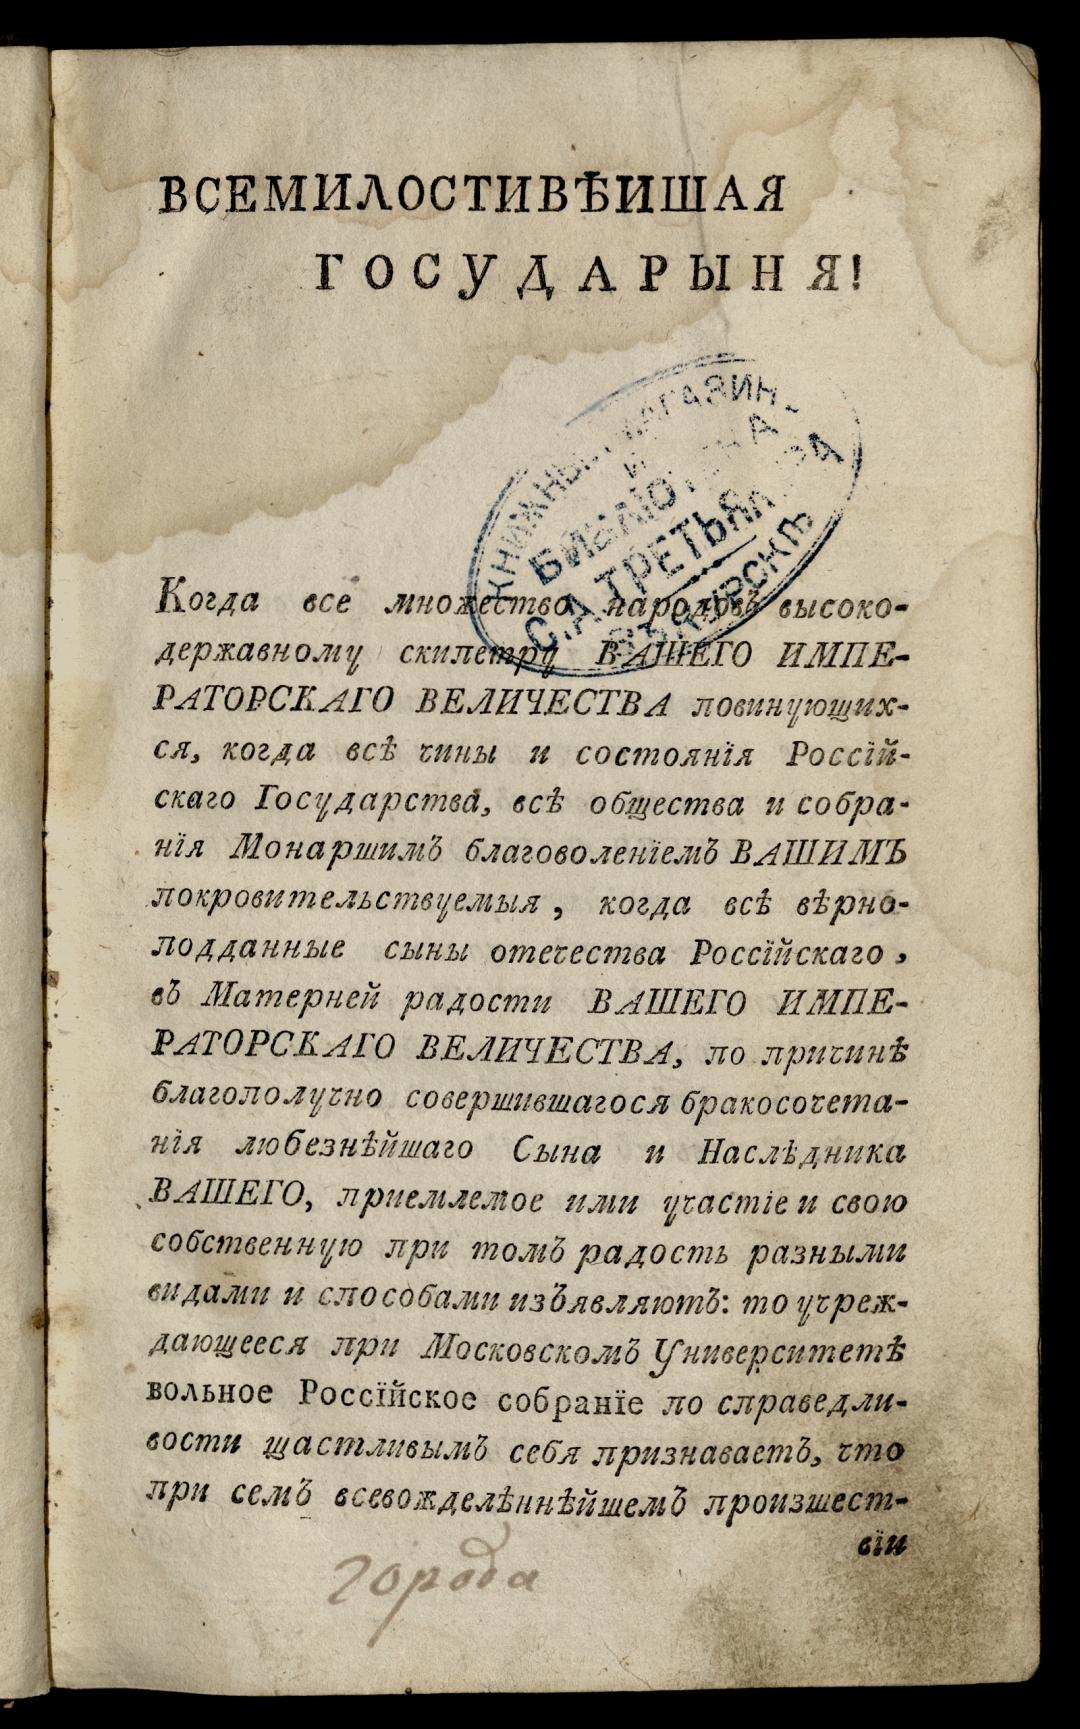 ВСЕМИЛОСТИВѢИШАЯ
ГОСУДАРЫНЯ!
КНИЖНЫЙ МАГАЗИН
И
БИБЛІОТЕКА
С.А ТРЕТЬЯ
Когда все множество народовъ высоко-
державному скипетру ВАШЕГО ИМПЕ-
РАТОРСКАГО ВЕЛИЧЕСТВА повинующих-
ся, когда всѣ чины и состоянїя Россїй-
скаго Государства, всѣ общества и собра-
нїя Монаршимъ благоволенїемъ ВАШИМЪ
покровительствуемыя, когда всѣ вѣрно-
подданные сыны отечества Россїйскаго,
въ Матерней радости ВАШЕГО ИМПЕ-
РАТОРСКАГО ВЕЛИЧЕСТВА, по причинѣ
благополучно совершившагося бракосочета-
нїя любезнѣйшаго Сына и Наслѣдника
ВАШЕГО, приемлемое ими участїе и свою
собственную при томъ радость разными
видами и способами изъявляютъ: то учреж-
дающееся при Московскомъ Университетѣ
вольное Россїйское собранїе по справедли-
вости щастливымъ себя признаваетъ, что
при семъ всевожделѣннѣйшемъ произшест-
вїи
города